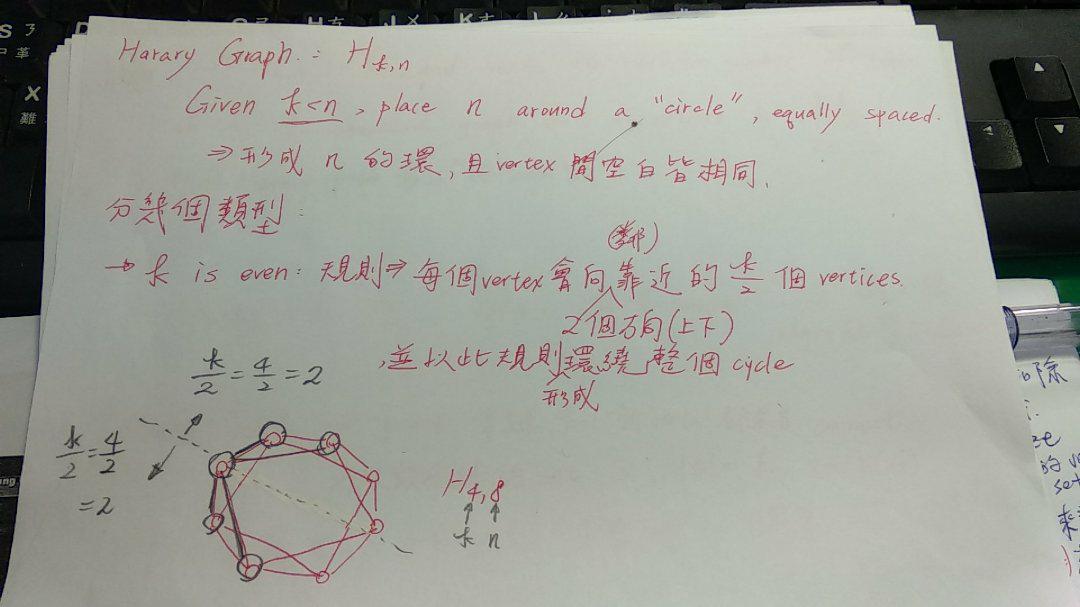 Harary Graph. : H k,n
Given k<n, place n around a "circle", equally spaced.
⇒形成 n 的環,且vertex 間空白皆相同.
分幾個類型:
(鄰)
→ k is even: 規則⇒每個vertex會向靠近的 k/2 個 vertices.
2個方向(上下)
,並以此規則環繞整個cycle
形成
k/2 = 4/2 = 2
k/2 = 4/2
= 2
H4,8
k n